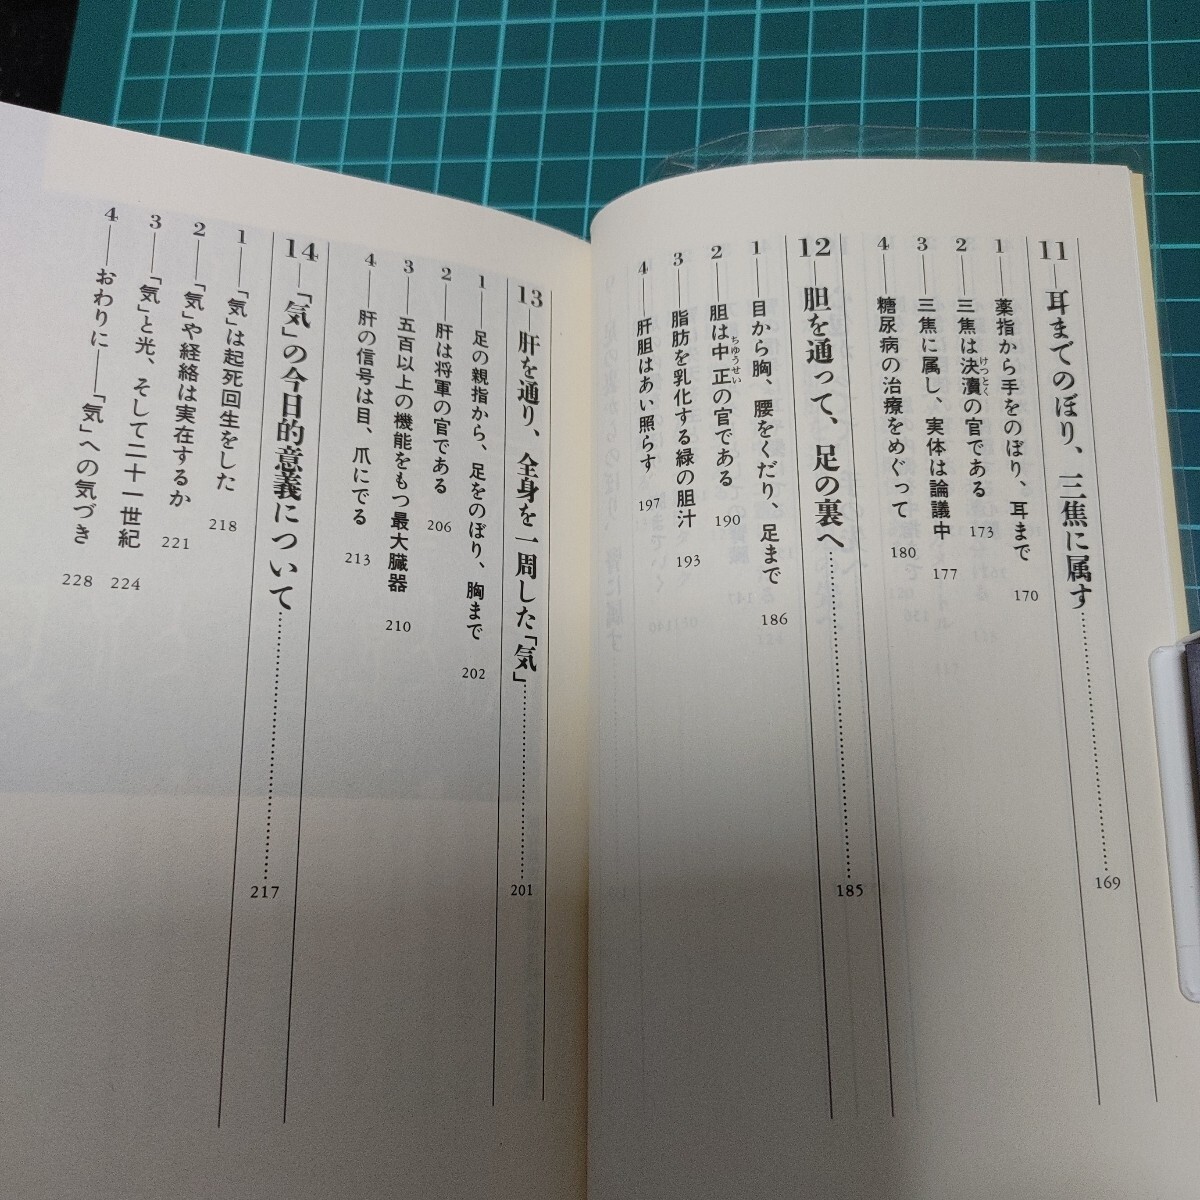 11―耳までのぼり、三焦に属す……169
1―薬指から手をのぼり、耳まで 170
2―三焦は決瀆の官である 173
けつとく
3―三焦に属し、実体は論議中 177
4―糖尿病の治療をめぐって 180
12―胆を通って、足の裏へ……185
1―目から胸、腰をくだり、足まで 186
2―胆は中正の官である 190
ちゆうせい
3―脂肪を乳化する緑の胆汁 193
4―肝胆はあい照らす 197
13―肝を通り、全身を一周した「気」……201
1―足の親指から、足をのぼり、胸まで 202
2―肝は将軍の官である 206
3―五百以上の機能をもつ最大臓器 210
4―肝の信号は目、爪にでる 213
14―「気」の今日的意義について……217
1―「気」は起死回生をした 218
2―「気」や経絡は実在するか 221
3―「気」と光、そして二十一世紀 224
4―おわりに――「気」への気づき 228